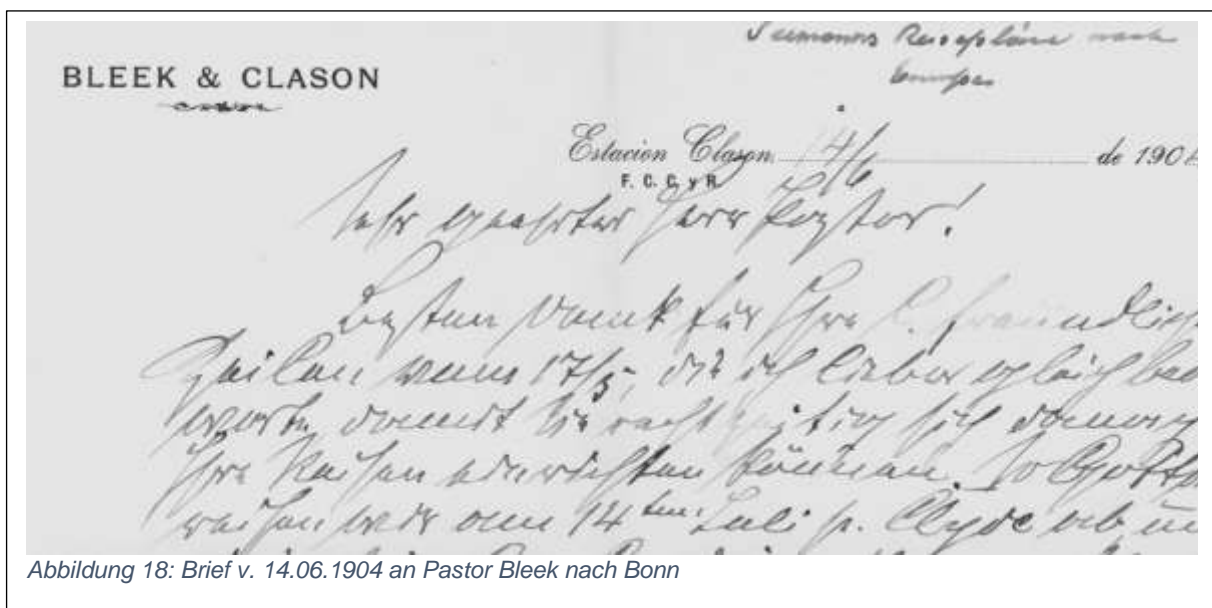 Reisepläne nach
Europa
BLEEK & CLASON
Estacion Clason 14/6 de 1904
F. C. C. y R.
Sehr geehrter Herr Pastor!
Besten Dank für Ihre l. freundlich
Zeilen vom 17/5, die ich lieber gleich bea
worte, damit Sie rechtzeitig sich danach
Ihre Reisen einrichten können. So Gott
reisen wir am 14ten Juli p. Clyde ab un
Abbildung 18: Brief v. 14.06.1904 an Pastor Bleek nach Bonn